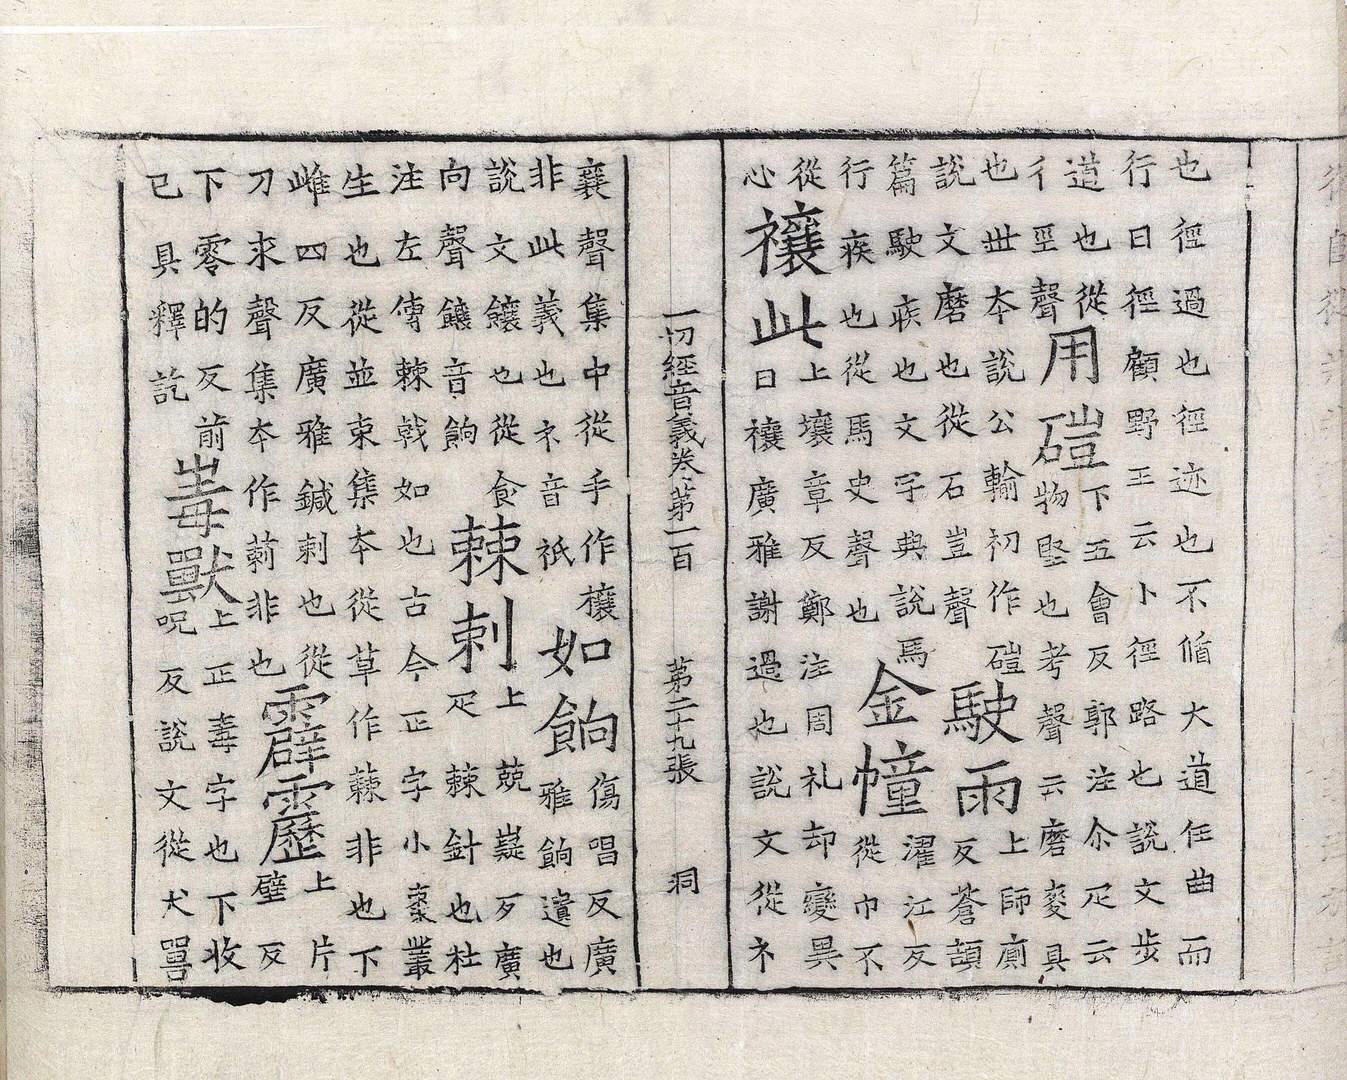 也徑過也徑迹也不脩大道任曲而
行曰徑顧野王云卜徑路也說文步
道也從
彳巠聲
用磑
下五會反郭注尒疋云
物堅也考聲云磨麥具
也世本說公輸初作磑
說文磨也從石豈聲
駛雨
上師廁
反蒼頡
篇駛疾也文字典說馬
行疾也從馬史聲也
金幢
濯江反
從巾不
從
心
禳此
上壤章反鄭注周礼却變異
曰禳廣雅謝過也說文從礻
一切經音義卷第一百 第二十九張 洞
襄聲集中從手作攘
非此義也礻音祇
如餉
傷唱反廣
雅餉遺也
說文饟也從食
向聲饟音餉
棘刺
上兢嶷反廣
疋棘針也杜
注左傳棘戟如也古今正字小棗叢
生也從並朿集本從草作蕀非也下
雌四反廣雅鍼刺也從
刀朿聲集本作莿非也
霹靂
上片
壁反
下零的反前
已具釋訖
毒獸
上正毒字也下收
呪反說文從犬嘼